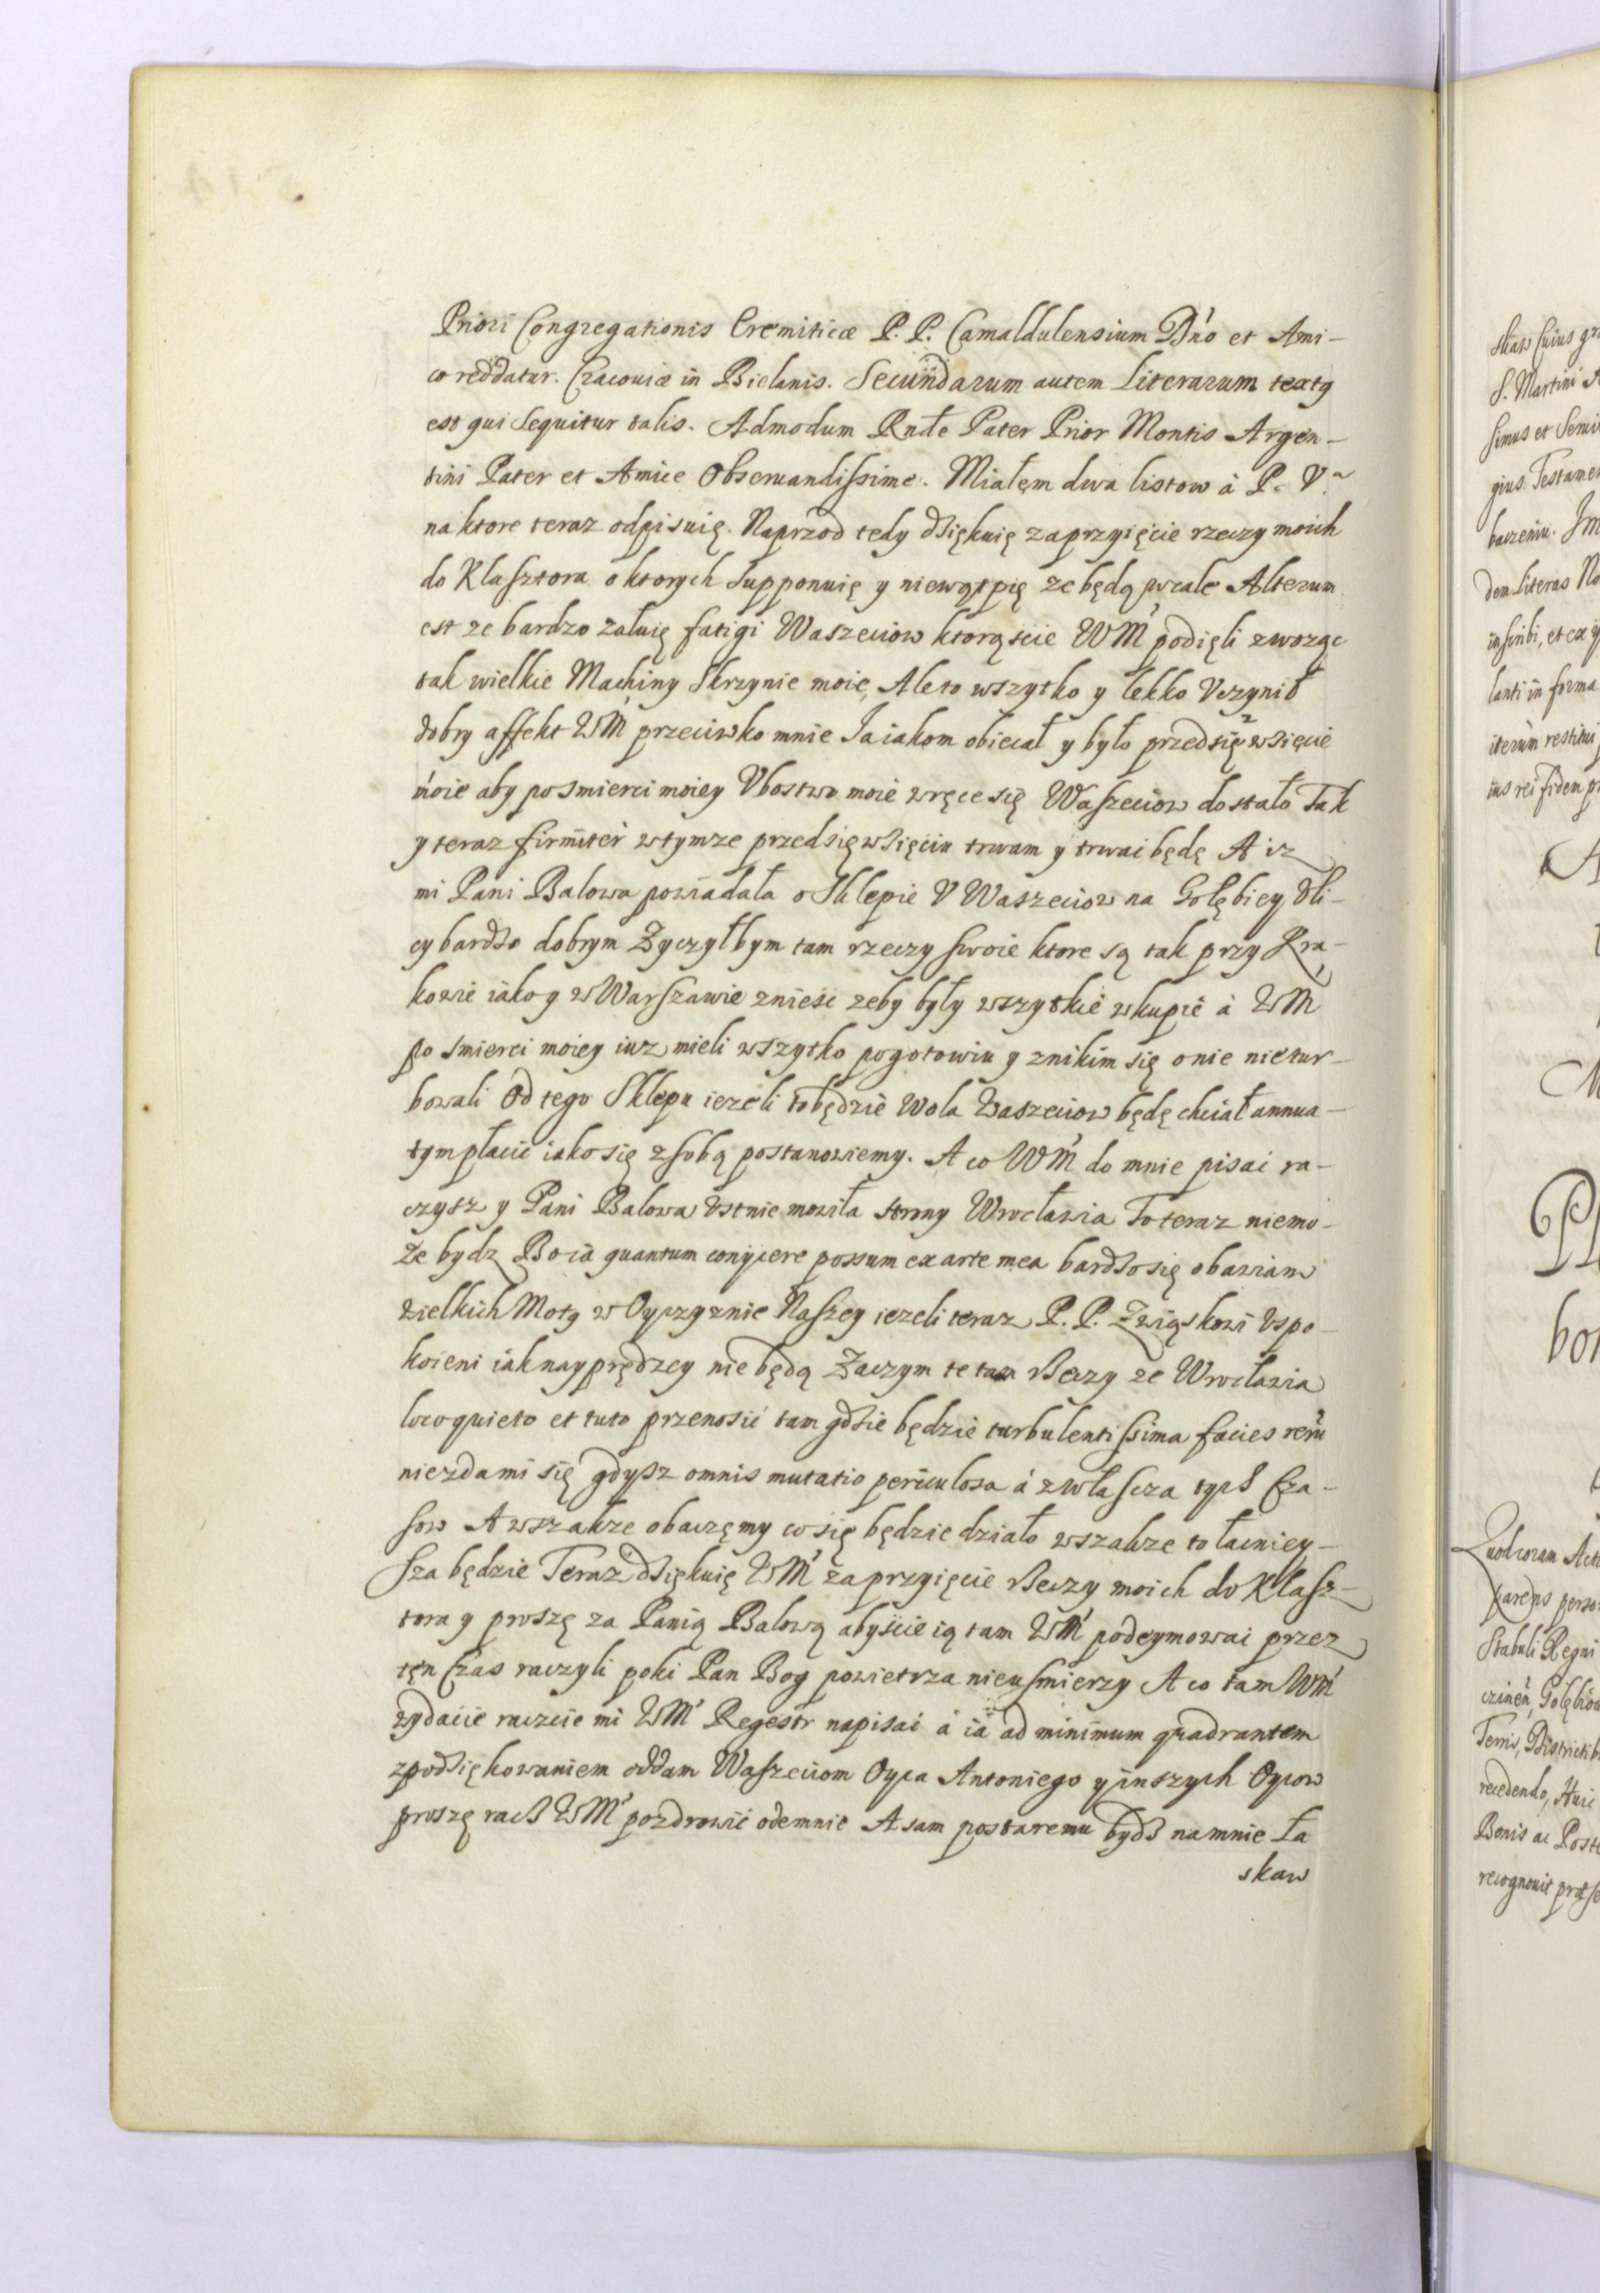 Priori Congregationis Eremiticæ P. P. Camaldulensium Dńo et Ami-
co reddatur. Cracouiæ in Bielanis. Secundarum autem Literarum textq
est qui sequitur talis. Admodum Rnde Pater Prior Montis Argen-
tini Pater et Amice Obseruandissime. Miałęm dwa listow à P. V.
na ktore teraz odpisuię. Naprzod tedy dziękuię za przyięcie rzeczy moich
do Klasztora o ktorych supponuię y niewątpię ze będą wcale Alterum
est ze bardzo załuię fatigi Waszeciow ktorąscie WM podięli zwoząc
tak wielkie Machiny Skrzynie moie, Ale to wszytko y lekko Vczynił
dobry affekt WM przeciwko mnie Ia iakom obiecał y było przedsięwzięcie
moie aby po smierci moiey Vbostwo moie wręce się Waszeciow dostało Tak
y teraz firmiter wtymze przedsięwzięciu trwam y trwac będę A iz
mi Pani Balowa powiadała o Sklepie V Waszeciow na Gołębiey Vli-
cy bardzo dobrym Zyczyłbym tam rzeczy swoie ktore są tak przy Kra-
kowie iako y w Warszawie zniesc zeby były wszytkie wkupie à WM
po smierci moiey iuz mieli wszytko pogotowiu y znikim się onie nietur-
bowali Od tego Sklepu iezeli to będzie Wola Waszeciow będę chciał annua-
tym płacic iako się z sobą postanowiemy. A co WM do mnie pisac ra-
czysz y Pani Balowa Vstnie mowiła strony Wrocławia To teraz niemo-
ze bydz Bo ia quantum conijcere possum ex arte mea bardzo się obawiam
wielkich Motq w Oyczyznie Naszey iezeli teraz P. P. Związkowi Vspo-
koieni iaknayprędzey nie będą Zaczym te tam Rzeczy ze Wrocławia
loco quieto et tuto przenosić tam gdzie będzie turbulentissima facies reru
niezdami się gdysz omnis mutatio periculosa à zwłascza tych Cza-
sow A wszakze obaczęmy co się będzie działo wszakze to łacniey-
sza będzie Teraz dziękuię WM za przyięcie Rzeczy moich do Klasz-
tora y proszę za Panią Balową abyscie ią tam WM podeymowac przez
tęn Czas raczyli poki Pan Bog powietrza nieusmierzy A co tam WM
wydacie raczcie mi WM Regestr napisac à ia ad minimum quadrantem
z podziękowaniem oddam Waszeciom Oyca Antoniego y inszych Oycow
proszę racz WM pozdrowic odemnie A sam postaremu bydz namnie ła
skaw
skaw Cuius gra
S. Martini
simus et Semi
gius Testamen
baczeniu. Im
dem Literas No
inscribi, et ex
lanti in forma
iterum restitui
ius rei fidem p
A
M
Pl
bon
Quolcoram Act
parens perso
Stabuli Regni
czinen, Gołębiow
Terris, Districtib
recedendo, Huic
Bonis ac Poste
recognouit præse